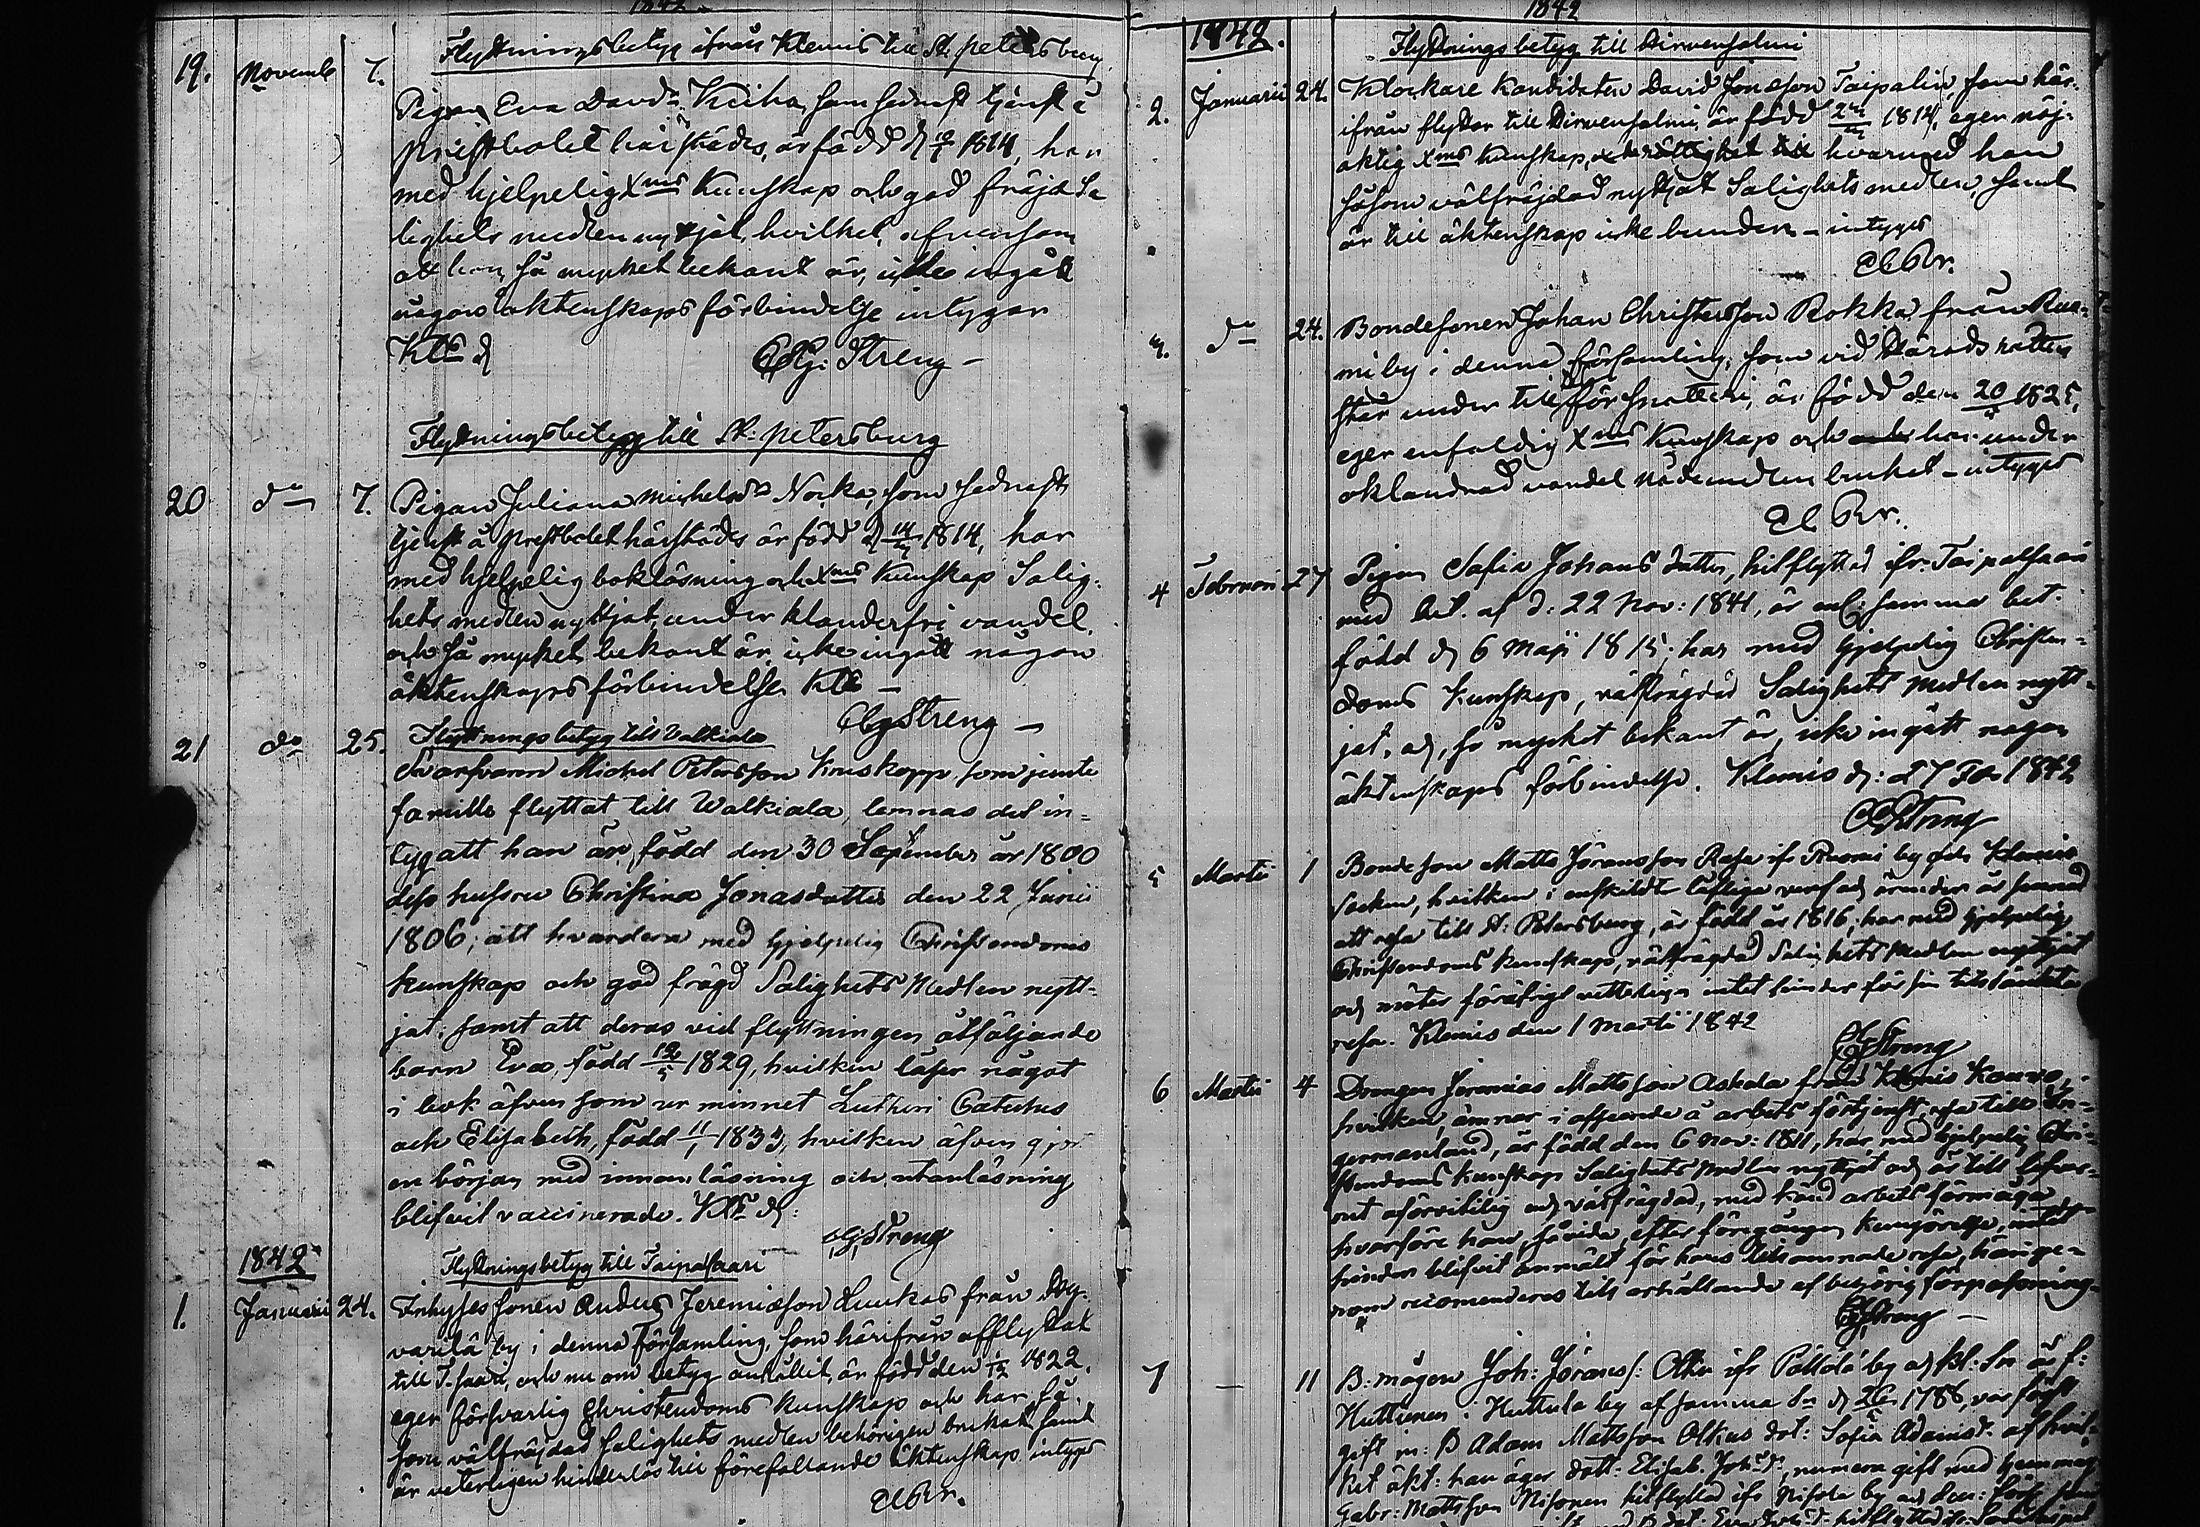 1842
Flyttningsbetyg ifrån Klemis till St. petersburg
19. Novemb 7.
Pigan Eva Davds Kuiha, som sednast tjenst å
prestbolet härstädes, är född d 1814, har
med hjelpelig Xms Kunskap och god fräjd Sa
lighets medlen nyttjat, hvilket, äfvensom
att hon, så mycket bekant är, icke ingått
någon äktenskaps förbindelse intygar
Kls d
Streng
Flyttningsbetyg till St: petersburg
20 do 7. Pigan Juliana Michelsdr Nocka, som sednast
tjenst å prestbolet härstädes är född d 14 1814, har
med hjelpelig bokläsning och Xms Kunskap Salig-
hets medlen nyttjat under klanderfri vandel,
och så mycket bekant är icke ingått någon
äktenskaps förbindelse Kls
Streng
Flyttningsbetyg till Walkiala
21 do 25.
Svarfvaren Michel Petersson Kruskopp som jemte
famille flyttat till Walkiala, lemnas det in-
tyg att han är född den 30 September år 1800
dess hustru Christina Jonasdotter den 22 Junii
1806; att hvardera med hjelpelig Christendoms
kunskap och god frägd Salighets Medlen nytt-
jat; samt att deras vid flyttningen åtföljande
barn Eva, född 12/5 1829, hvilken läser något
i bok äfven som ur minnet Lutheri Catechis
och Elisabeth, född 11/1 1833, hvilken äfven gjort
en början med innanläsning och utanläsning
blifvit vaccinerade. Kls d:
Streng
1842
Flyttningsbetyg till Taipalsaari
1. Januarii 24. Inhyses sonen Anders Jeremiæson Luukas från
varila by i denna Församling, som härifrån afflyttat
till T-saari, och nu om betyg anhållit, är född den 1822,
eger försvarlig Christendoms kunskap och har så-
som välfräjdad salighets medlen behörigen brukat samt
är veterligen hinderlös till förefallande äktenskap intygas
1842
1842.
Flyttningsbetyg till Hirvensalmi
2. Januarii 24. Klockare Kandidaten David Jonæson Taipalin, som här-
ifrån flyttar till Hirvensalmi, är född 1814, eger nöj-
aktig Xms kunskap, hvarmed han
såsom välfräjdad nyttjat Salighets medlen, samt
är till äktenskap icke bunden - intygas
3. do 24. Bondesonen Johan Christersson Rokka från Ruo-
mi by i denna församling, som vid Härads rätten
står under tilltal för snatteri, är född den 20 1825,
eger enfaldig Xms Kunskap och har under
oklandrad vandel nådemedlen brukat - intygas
4 Februari 27 Pigan Sofia Johans dotter, hitflyttad ifr. Taipalsaari
med bet. af d: 22 Nov: 1841, är enl. samma bet.
född d 6 Maji 1815; har med hjelpelig Christen-
doms kunskap, välfrägdad Salighets Medlen nytt-
jat, och, så mycket bekant är, icke ingått någon
äktenskaps förbindelse. Klemis d: 27 Feb 1842
Streng
5 Martii 1 Bondeson Matts Jöransson Rasa ifr. Ruomi by och Klemis
Socken, hvilken i enskildt lofliga värf och ärenden är sinnad
att resa till St: Petersburg, är född år 1816; har med hjelpelig
Christendoms kunskap, välfrägdad Salighets Medlen nyttjat
och möter föröfrigt vetterligen intet hinder för sin tilltänkta
resa. Klemis den 1 Martii 1842
Streng
6 Martii 4 Drengen Jeremias Mattsson Askola från Klemis
hvilken, ämnar i afseende å arbets förtjenst, resa till In-
germanland, är född den 6 Nov: 1811, har med hjelpelig Chri-
stendoms kunskap Salighets medlen nyttjat och är till lefver-
net oförvitelig och välfrägdad, med känd arbets förmåga
hvarföre han, såvida, efter föregången kungörelse, intet
hinder blifvit anmält för hans tillämnade resa, härige-
nom recomenderas till erhållande af behörig förpassning
Streng
7 - 11 B: mågen Joh: Jöranss: Olku ifr Pöllölä by och Kl: Sn är f:
Huttunen i Huttula by af samma Sn d 26 1786, var först
gift m: B Adam Mattsson Olkus dot: Sofia Adamsd. af hvil-
ket äkt: han äger dott: Elisab. Johsdr, numera gift med hemmåg
Gabr: Mattsson Nisonen hitflyttad ifr